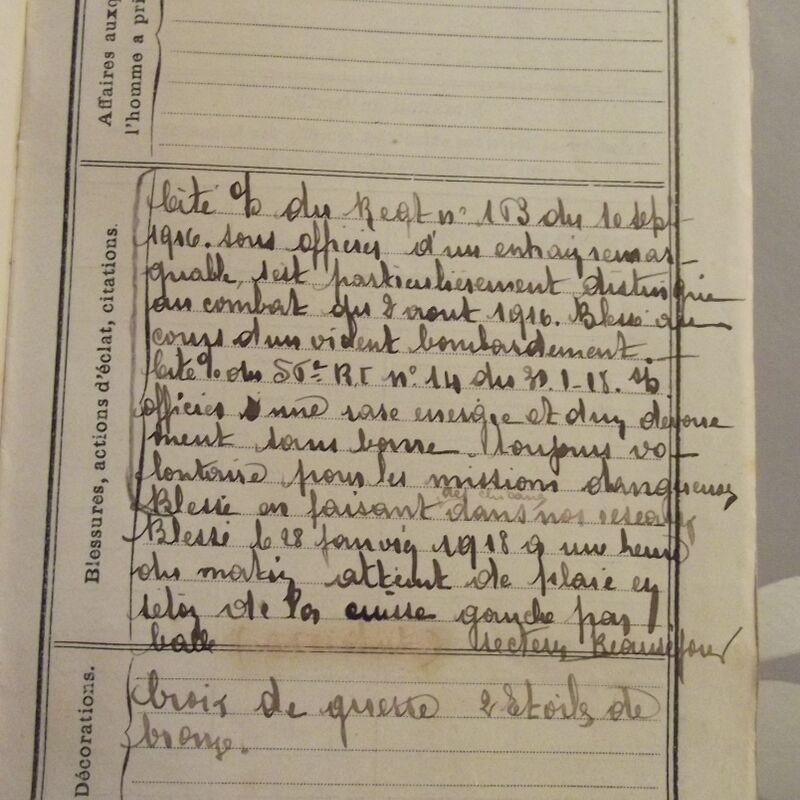 Affaires auxq
l'homme a pri
Blessures, actions d'éclat, citations.
Cité % du Regt n° 153 du 10 sept
1916. sous officier d'un entrain remar-
quable, s'est particulièrement distingué
au combat du 2 aout 1916. Blessé au
cours d'un violent bombardement. —
Cité % du R.I n° 14 du 30.1.18.
officier d'une rare energie et d'un devoue
ment sans borne. toujours vo-
lontaire pour les missions dangereuses
Blessé en faisant des chicanes dans nos reseaux
Blessé le 28 janvier 1918 a une heure
du matin atteint de plaie en
seton de la cuisse gauche par
balle secteur Beauséjour
Décorations.
Croix de guerre 2 Etoiles de
bronze.